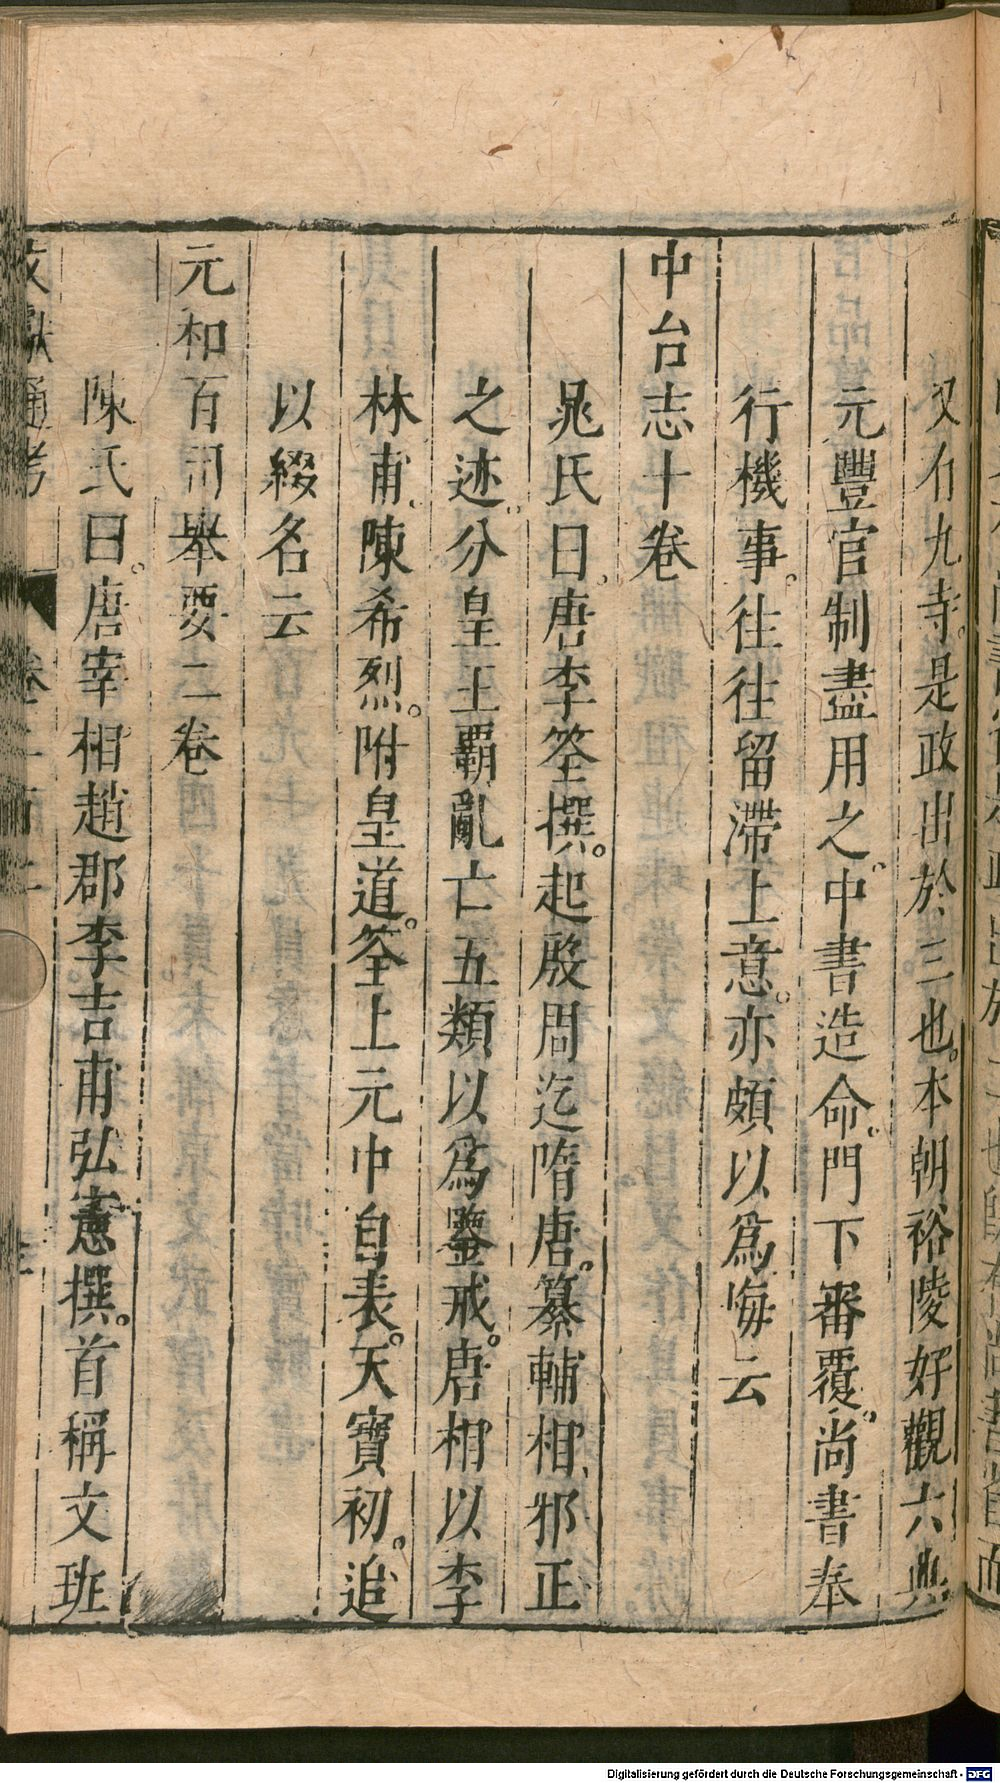 又有九寺。是政出於三也。本朝裕陵好觀六典
元豐官制盡用之。中書造命。門下審覆。尚書奉
行機事。往往留滯上意。亦頗以爲悔云
中台志十卷
晁氏曰。唐李筌撰。起殷周迄隋唐。纂輔相邪正
之迹。分皇王覇亂亡五類以爲鑒戒。唐相以李
林甫、陳希烈。附皇道。筌上元中自表。天寶初。追
以綴名云
元和百司舉要二卷
陳氏曰。唐宰相趙郡李吉甫弘憲撰。首稱文班
文獻通考
Digitalisierung gefördert durch die Deutsche Forschungsgemeinschaft - DFG